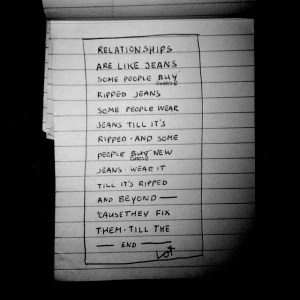 RELATIONSHIPS
ARE LIKE JEANS
SOME PEOPLE BUY
CHOOSE
RIPPED JEANS
SOME PEOPLE WEAR
JEANS TILL IT'S
RIPPED. AND SOME
PEOPLE BUY NEW
CHOOSE
JEANS WEAR IT
TILL IT'S RIPPED
AND BEYOND —
'CAUSE THEY FIX
THEM. TILL THE
— END —